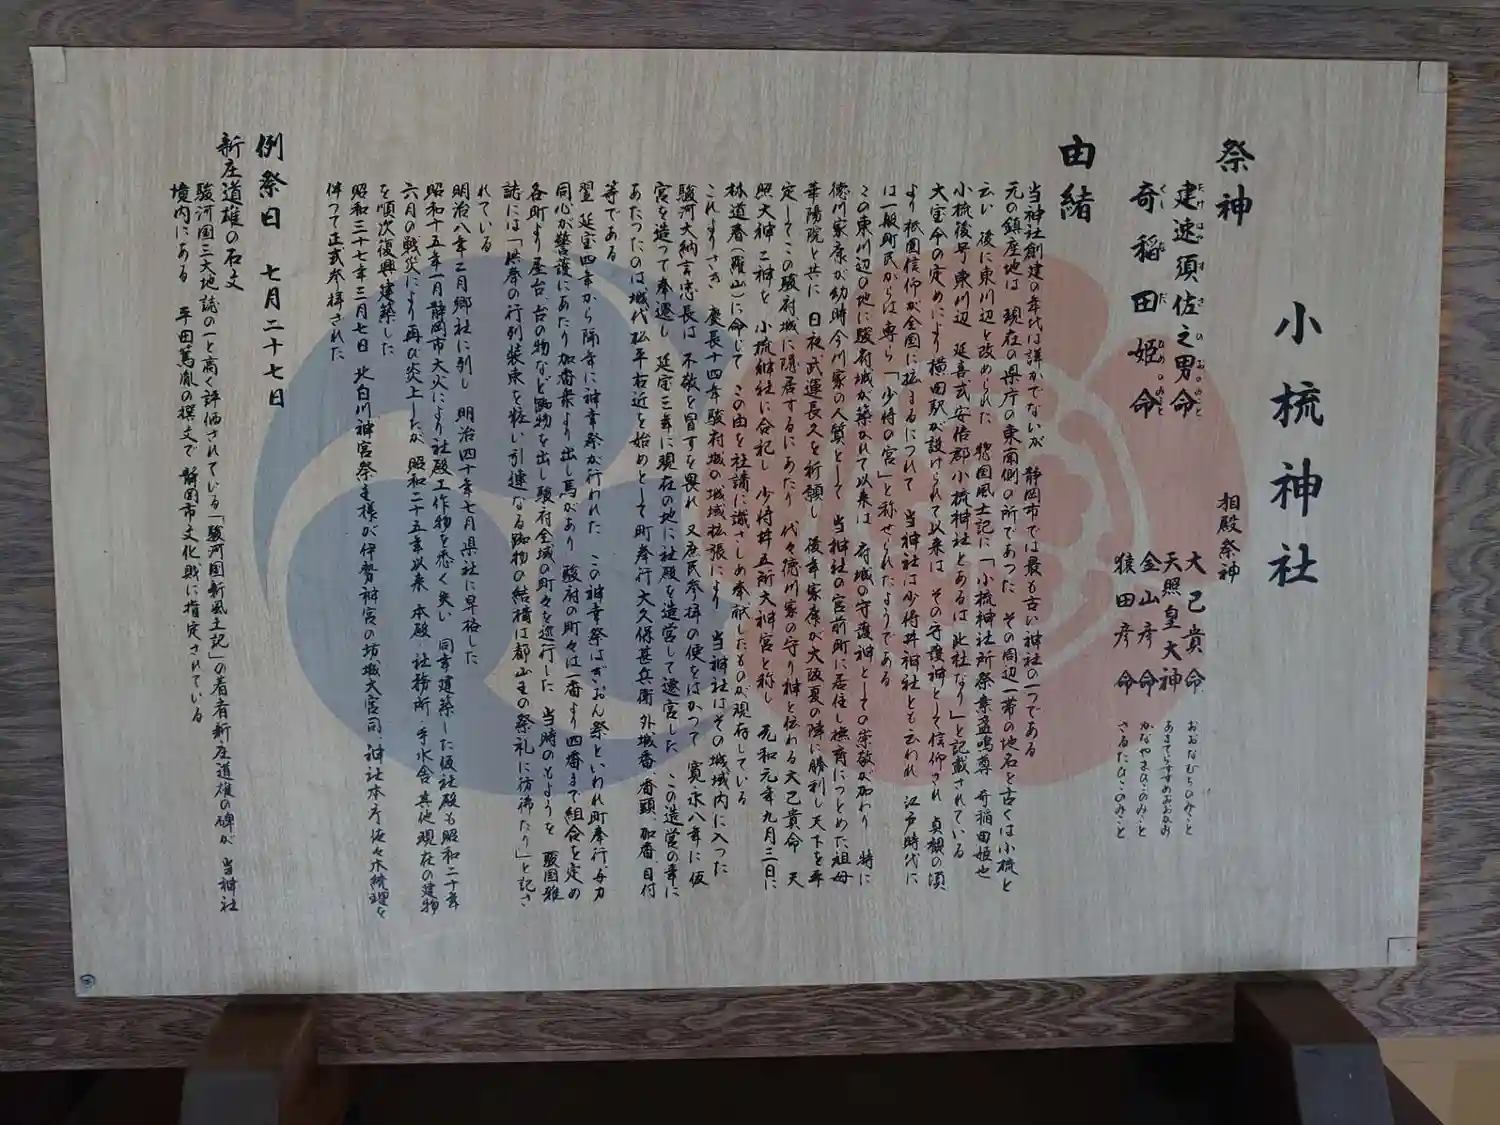 小梳神社
祭神
建速須佐之男命
たけはやすさのおのみこと
奇稲田姫命
くしいなだひめのみこと
相殿祭神
大己貴命 おおなむちのみこと
天照皇大神 あまてらすすめおおかみ
金山彦命 かなやまひこのみこと
猿田彦命 さるたひこのみこと
由緒
当神社創建の年代は詳かでないが 静岡市では最も古い神社の一つである
元の鎮座地は 現在の県庁の東南側の所であつた その周辺一帯の地名を古くは小梳と
云い 後に東川辺と改められた 惣国風土記に「小梳神社所祭素盞嗚尊 奇稲田姫也
小梳後号東川辺 延喜式安倍郡小梳神社とあるは此社なり」と記載されている
大宝令の定めにより 横田駅が設けられて以来は その守護神として信仰され 貞観の頃
より祇園信仰が全国に拡まるにつれて 当神社は少将井神社とも云われ 江戸時代に
は一般町民からは専ら「少将の宮」と称せられたようである
この東川辺の地に駿府城が築かれて以来は 府城の守護神としての崇敬が加わり 特に
徳川家康が幼時今川家の人質として 当神社の宮前町に居住し撫育につとめた祖母
華陽院と共に 日夜武運長久を祈願し 後年家康が大阪夏の陣に勝利し天下を平
定してこの駿府城に隠居するにあたり 代々徳川家の守り神と伝わる大己貴命 天
照大神二神を 小梳神社に合祀し 少将井五所大神宮と称し 元和元年九月三日に
林道春(羅山)に命じて この由を社請に識さしめ奉献したものが現存している
これよりさき 慶長十四年駿府城の城域拡張により 当神社はその城域内に入つた
駿河大納言忠長は 不敬を冒すを畏れ 又庶民参拝の便をはかつて 寛永八年に仮
宮を造つて奉遷し 延宝三年に現在の地に社殿を造営して遷宮した この造営の事に
あたつたのは城代松平右近を始めとして町奉行大久保甚兵衛 外城番、番頭、加番、目付
等である
翌 延宝四年から隔年に神幸祭が行われた この神幸祭はぎおん祭といわれ町奉行、与力
同心が警護にあたり加番衆より出し馬があり 駿府の町々は一番より四番まで組合を定め
各町より屋台、台の物など踟物を出し駿府全域の町々を巡行した 当時のもようを 駿国雑
誌には「供奉の行列装束を粧い引連なる踟物の結構は都山王の祭礼に彷彿たり」と記さ
れている
明治八年二月郷社に列し 明治四十年七月県社に昇格した
昭和十五年一月静岡市大火により社殿工作物を悉く失い 同年建築した仮社殿も昭和二十年
六月の戦災により再び炎上したが 昭和二十五年以来 本殿、社務所、手水舎 其他現在の建物
を順次復興建築した
昭和三十七年三月七日 北白川神宮祭主様が伊勢神宮の坊城大宮司、神社本庁佐々木統理を
伴つて正式参拝された
例祭日 七月二十七日
新庄道雄の石文
駿河国三大地誌の一と高く評価されている「駿河国新風土記」の著者新庄道雄の碑が 当神社
境内にある 平田篤胤の撰文で 静岡市文化財に指定されている